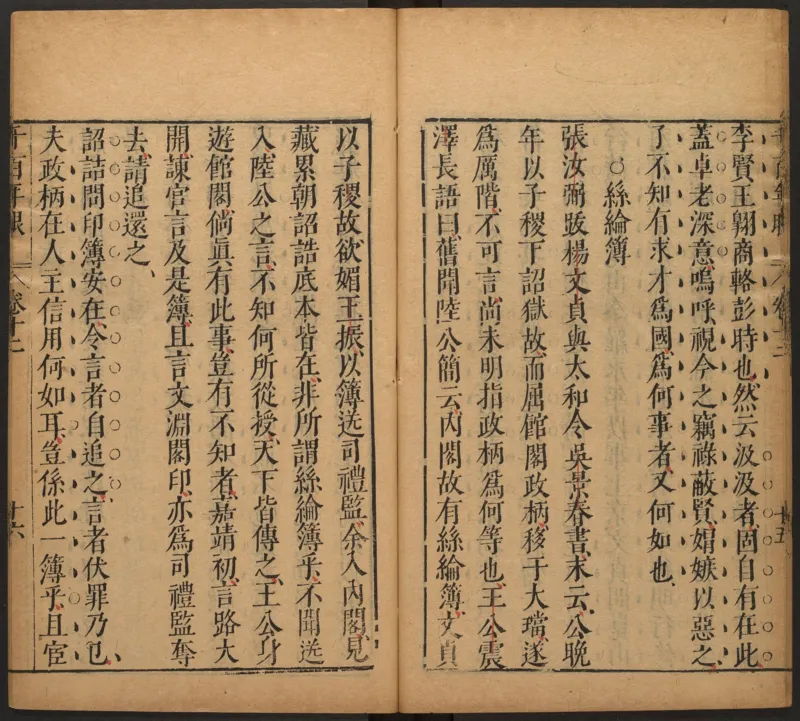 李賢王翱商輅彭時也、然云汲汲者、固自有在此
蓋卓老深意、嗚呼、視今之竊祿蔽賢、媢嫉以惡之、
了不知有求才爲國、爲何事者、又何如也、
○絲綸簿
張汝弼跋楊文貞與太和令吳景春書、末云、公晚
年以子稷下詔獄故、而屬館閣政柄、移于大璫、遂
爲厲階、不可言、尚未明指政柄爲何等也、王公震
澤長語曰、舊聞陸公簡云、內閣故有絲綸簿、文貞
以子稷故、欲媚王振、以簿送司禮監、余入內閣、見
藏累朝詔誥底本皆在、非所謂絲綸簿乎、不聞送
入陸公之言、不知何所從授、天下皆傳之、王公身
遊館閣、倘眞有此事、豈有不知者、嘉靖初、言路大
開、諫官言及是簿、且言文淵閣印、亦爲司禮監奪
去、請追還之、
詔詰問印簿安在、令言者自追之、言者伏罪乃已、
夫政柄在人主信用何如耳、豈係此一簿乎、且宦
千百年眼
卷十二
十五
千百年眼
卷十二
十六